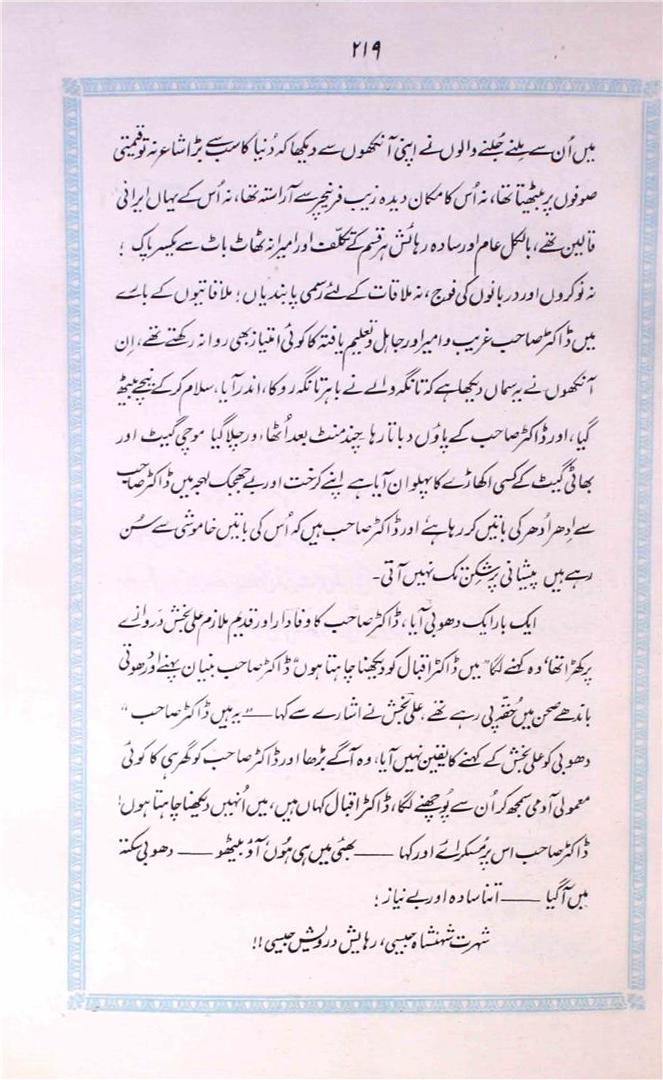 ۲۱۹
میں اُن سے ملنے جُلنے والوں نے اپنی آنکھوں سے دیکھا کہ دُنیا کا سب سے بڑا شاعر نہ تو قیمتی
صوفوں پر بیٹھتا تھا، نہ اُس کا مکان دیدہ زیب فرنیچر سے آراستہ تھا، نہ اُس کے یہاں ایرانی
قالین تھے، بالکل عام اور سادہ رہائش ہر قسم کے تکلّف اور امیرانہ ٹھاٹ باٹ سے یکسر پاک ؛
نہ نوکروں اور دربانوں کی فوج، نہ ملاقات کے لئے رسمی پابندیاں؛ ملاقاتیوں کے بارے
میں ڈاکٹر صاحب غریب و امیر اور جاہل و تعلیم یافتہ کا کوئی امتیاز بھی روا نہ رکھتے تھے، اِن
آنکھوں نے یہ سماں دیکھا ہے کہ تانگہ والے نے باہر تانگہ روکا، اندر آیا، سلام کر کے نیچے بیٹھ
گیا، اور ڈاکٹر صاحب کے پاؤں دباتا رہا چند منٹ بعد اُٹھا اور چلا گیا موچی گیٹ اور
بھاٹی گیٹ کے کسی اکھاڑے کا پہلوان آیا ہے اپنے کرخت اور بے جھجک لہجہ میں ڈاکٹر صاحب
سے اِدھر اُدھر کی باتیں کر رہا ہے اور ڈاکٹر صاحب ہیں کہ اُس کی باتیں خاموشی سے سُن
رہے ہیں پیشانی پر شکن تک نہیں آتی۔
ایک بار ایک دھوبی آیا، ڈاکٹر صاحب کا وفادار اور قدیم ملازم علی بخش دروازے
پر کھڑا تھا، وہ کہنے لگا "میں ڈاکٹر اقبال کو دیکھنا چاہتا ہوں" ڈاکٹر صاحب بنیان پہنے اور دھوتی
باندھے صحن میں حُقّہ پی رہے تھے، علی بخش نے اشارے سے کہا —— "یہ ہیں ڈاکٹر صاحب"
دھوبی کو علی بخش کے کہنے کا یقین نہیں آیا، وہ آگے بڑھا اور ڈاکٹر صاحب کو گھر ہی کا کوئی
معمولی آدمی سمجھ کر اُن سے پُوچھنے لگا، ڈاکٹر اقبال کہاں ہیں، میں اُنہیں دیکھنا چاہتا ہوں!
ڈاکٹر صاحب اس پر مُسکرائے اور کہا —— بھئی میں ہی ہُوں، آؤ بیٹھو —— دھوبی سکتہ
میں آ گیا —— اتنا سادہ اور بے نیاز ؛
شہرت شہنشاہ جیسی، رہایش درویش جیسی !!